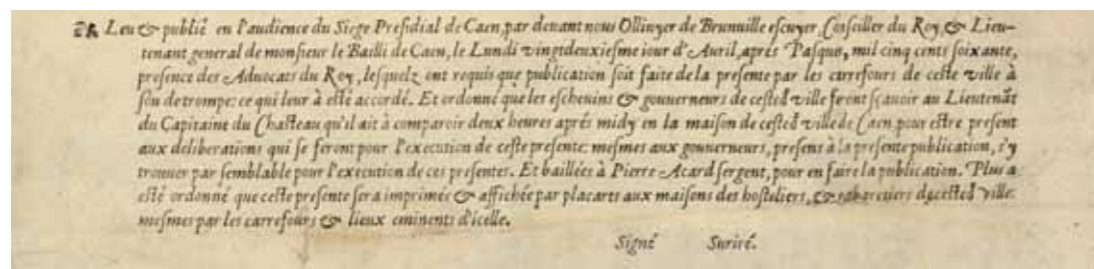 ❧ Leu & publié en l'audience du Siege Presidial de Caen, par deuant nous Olliuyer de Brunuille escuyer Conseiller du Roy, & Lieu-
tenant general de monsieur le Bailli de Caen, le Lundi vingtdeuxiesme iour d'Auril, aprés Pasques, mil cinq cents soixante,
presence des Aduocats du Roy, lesquelz ont requis que publication soit faite de la presente par les carrefours de ceste ville à
son de trompe: ce qui leur à esté accordé. Et ordonné que les escheuins & gouuerneurs de cested ville feront sçauoir au Lieutenãt
du Capitaine du Chasteau qu'il ait à comparoir deux heures aprés midy en la maison de cested ville de Caen, pour estre present
aux deliberations qui se feront pour l'execution de ceste presente: mesmes aux gouuerneurs, presens à la presente publication, s'y
trouuer par semblable pour l'execution de ces presentes. Et baillées à Pierre Acard sergent, pour en faire la publication. Plus a
esté ordonné que ceste presente sera imprimée & affichée par placarts aux maisons des hosteliers, & cabaretiers de cested ville:
mesmes par les carrefours & lieux eminents d'icelle.
Signé Suriré.